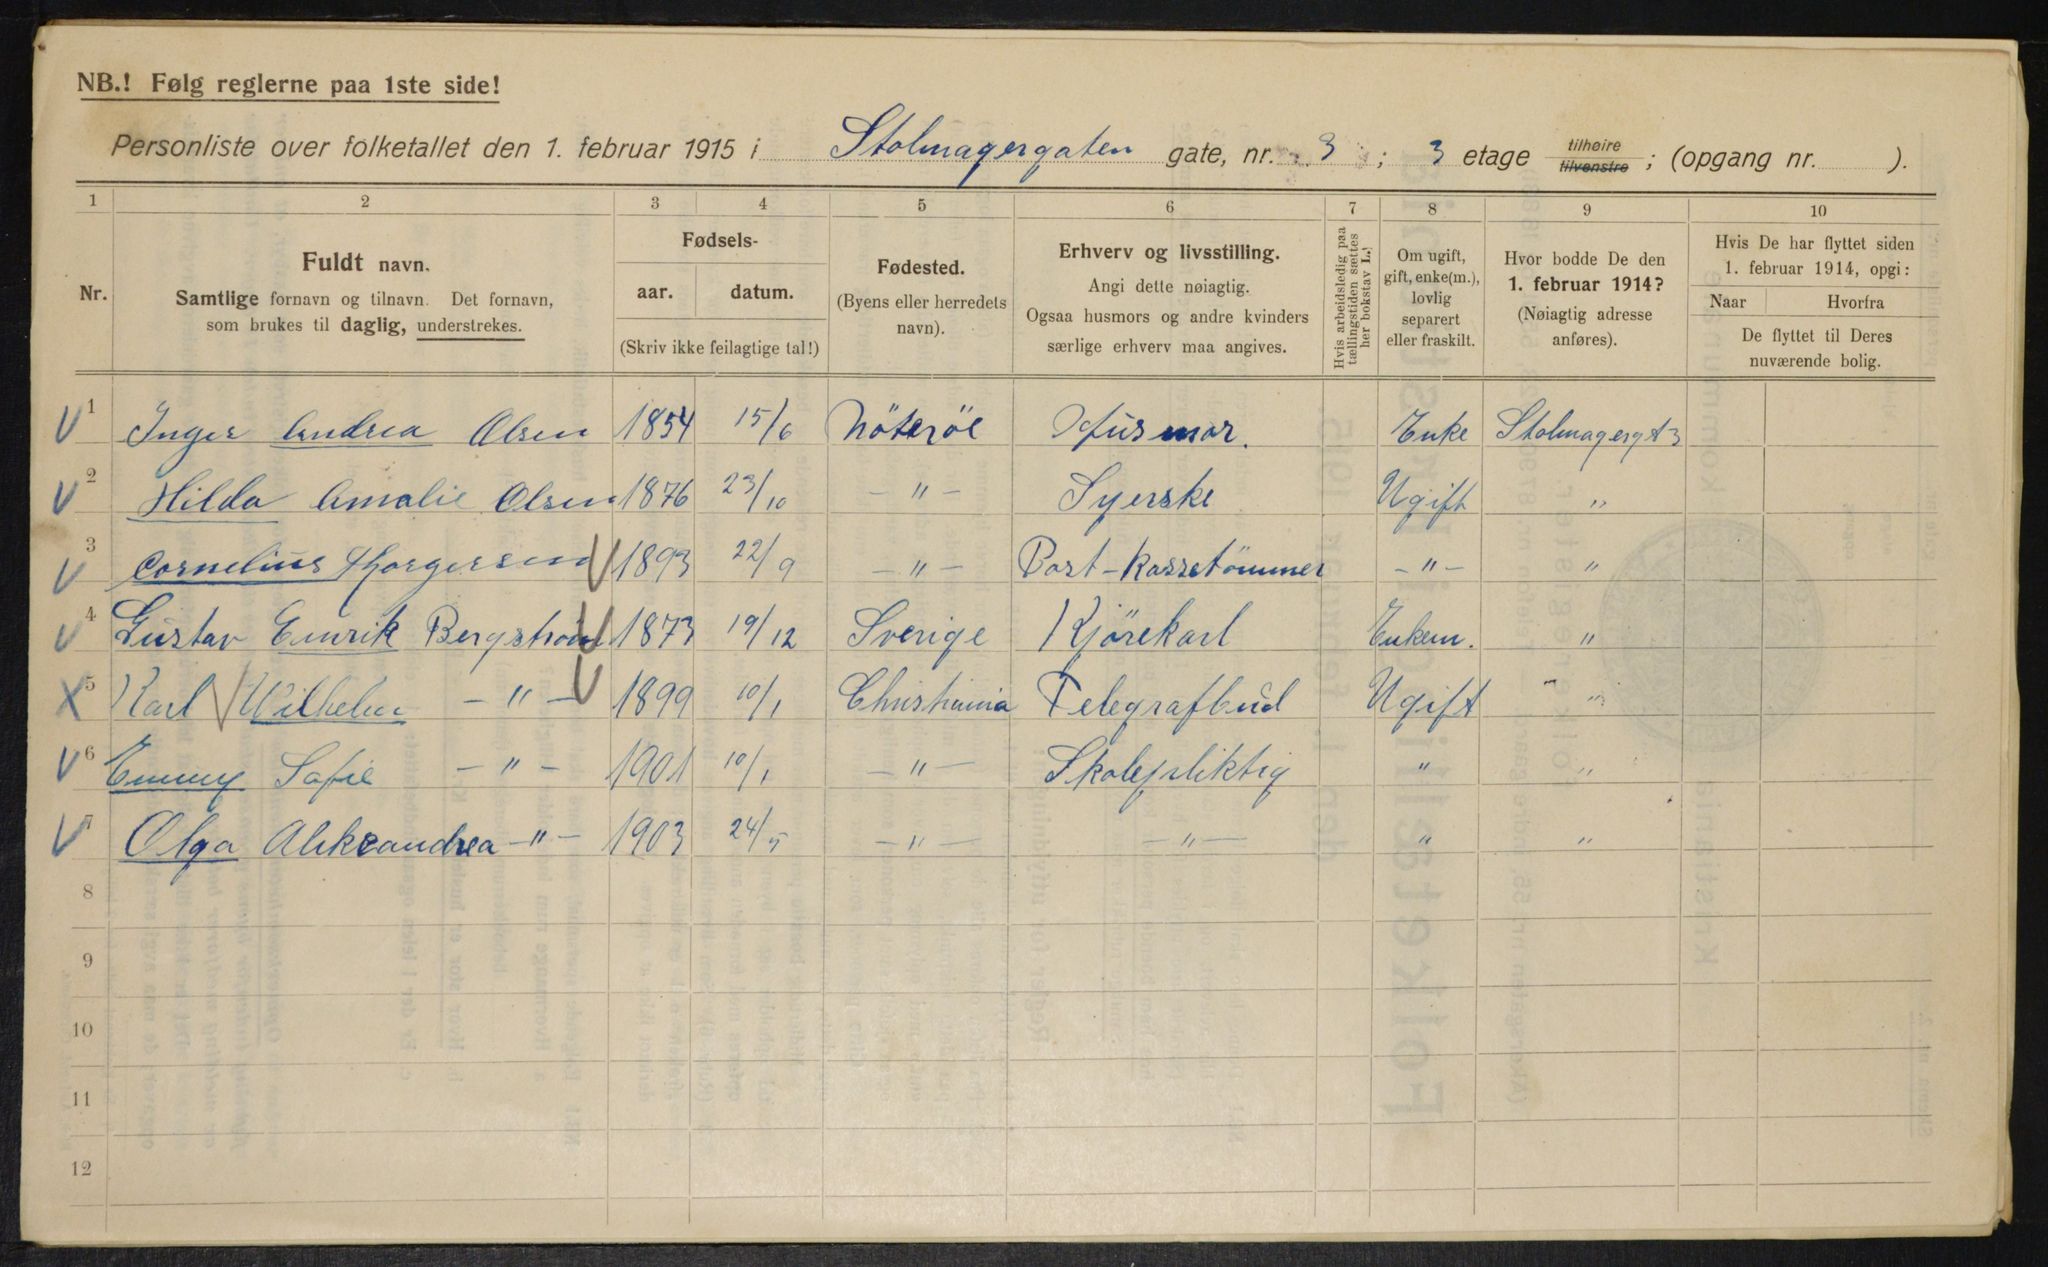 NB.! Følg reglerne paa 1ste side!
Personliste over folketallet den 1. februar 1915 i Stolmagergaten gate, nr. 3; 3 etage tilhøire tilvenstre; (opgang nr. ).
1 2 3 4 5 6 7 8 9 10
Nr.
Fuldt navn.
Samtlige fornavn og tilnavn. Det fornavn,
som brukes til daglig, understrekes.
Fødsels-
aar. datum.
(Skriv ikke feilagtige tal!)
Fødested.
(Byens eller herredets
navn).
Erhverv og livsstilling.
Angi dette nøiagtig.
Ogsaa husmors og andre kvinders
særlige erhverv maa angives.
Hvis arbeidsledig paa
tællingstiden sættes
her bokstav L.
Om ugift,
gift, enke(m.),
lovlig
separert
eller fraskilt.
Hvor bodde De den
1. februar 1914?
(Nøiagtig adresse
anføres).
Hvis De har flyttet siden
1. februar 1914, opgi:
Naar Hvorfra
De flyttet til Deres
nuværende bolig.
V 1 Inger Andrea Olsen 1854 15/6 Nöteröe Husmor. Enke Stolmagergt 3
V 2 Hilda Amalie Olsen 1876 23/10 — " — Syerske Ugift "
V 3 Cornelius Thorgersen V 1893 22/9 — " — Post-kassetömmer — " — "
V 4 Gustav Emrik Bergstrøm V 1873 19/12 Sverige Kjörekarl Enkem. "
X 5 Karl Wilhelm — " — V 1899 10/1 Christiania Telegrafbud Ugift " "
V 6 Emmy Sofie — " — 1901 10/1 — " — Skolepliktig " "
V 7 Olga Aleksandrea — " — 1903 24/5 — " — — " — " "
8
9
10
11
12